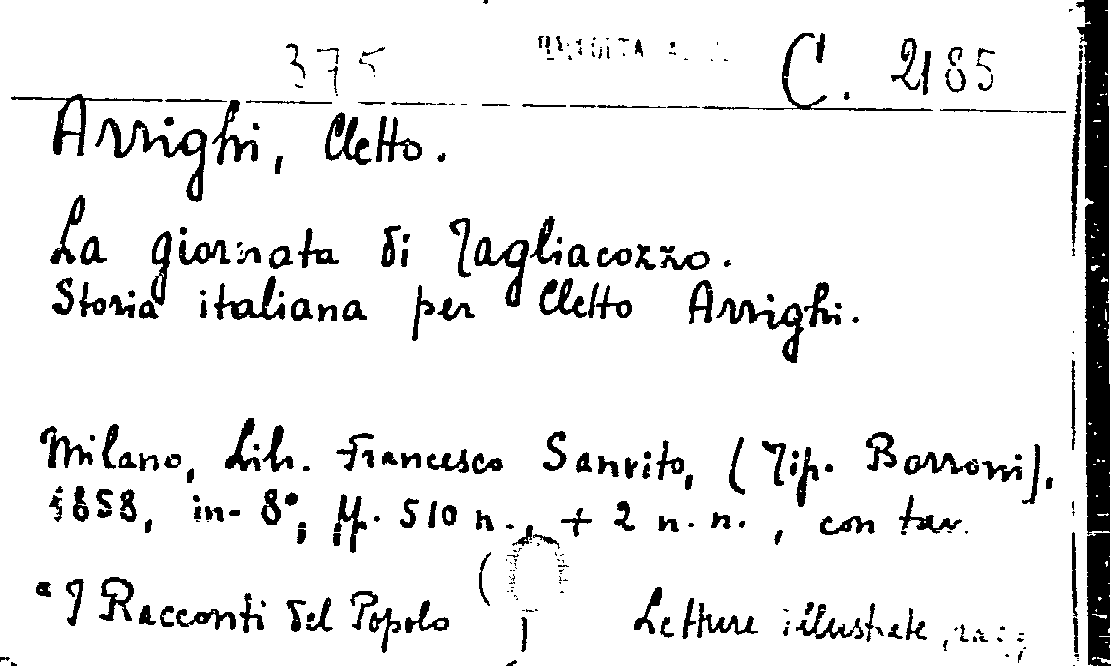 375 C. 2185
Arrighi, Cletto.
La giornata di Tagliacozzo.
Storia italiana per Cletto Arrighi.
Milano, Lib. Francesco Sanvito, (Tip. Borroni),
1858, in-8°, pp. 510 n., + 2 n. n., con tav.
"I Racconti del Popolo Letture illustrate,